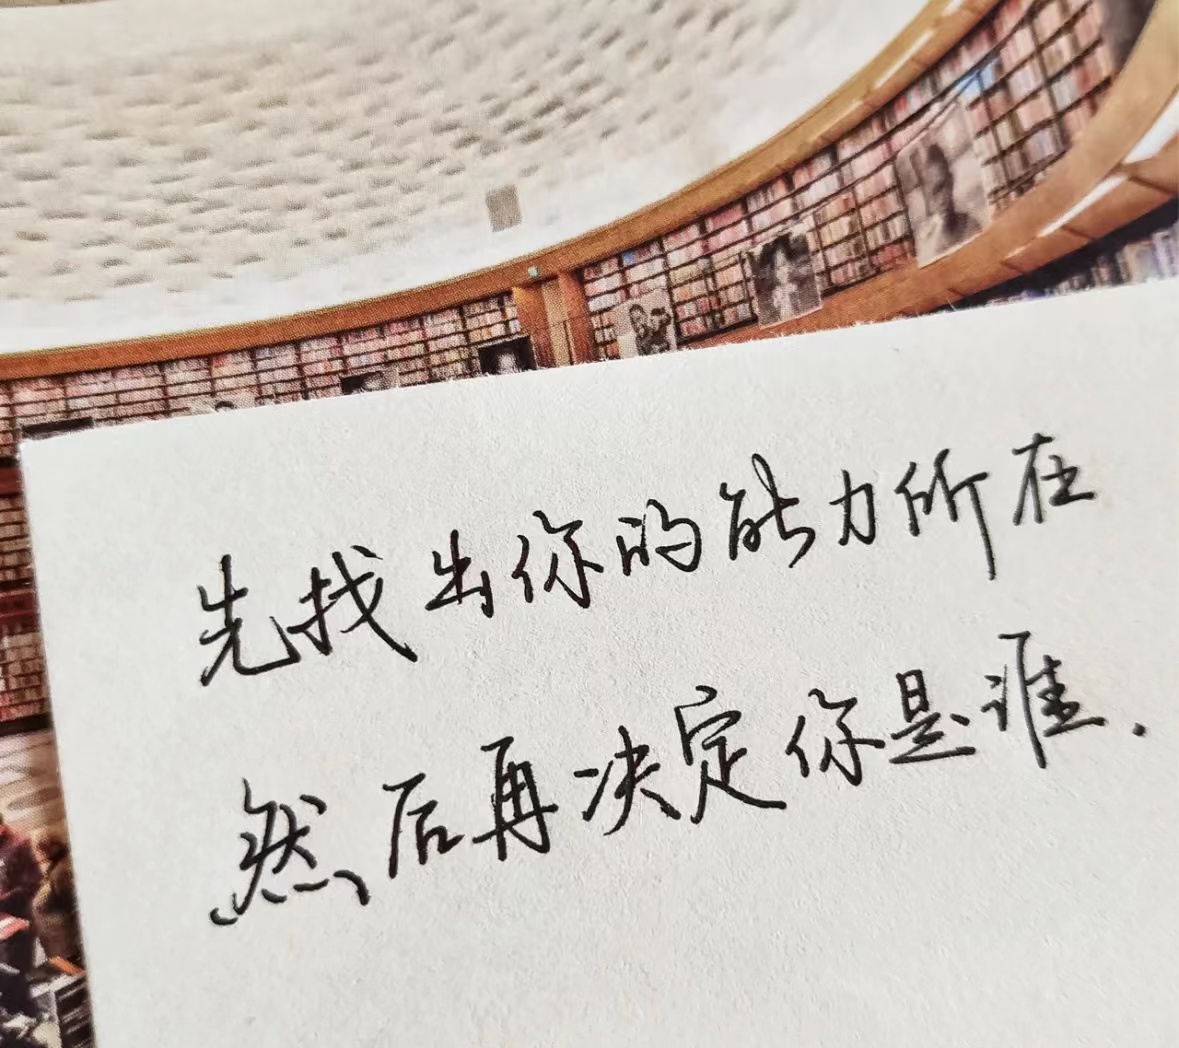 先找出你的能力所在
然后再决定你是谁.